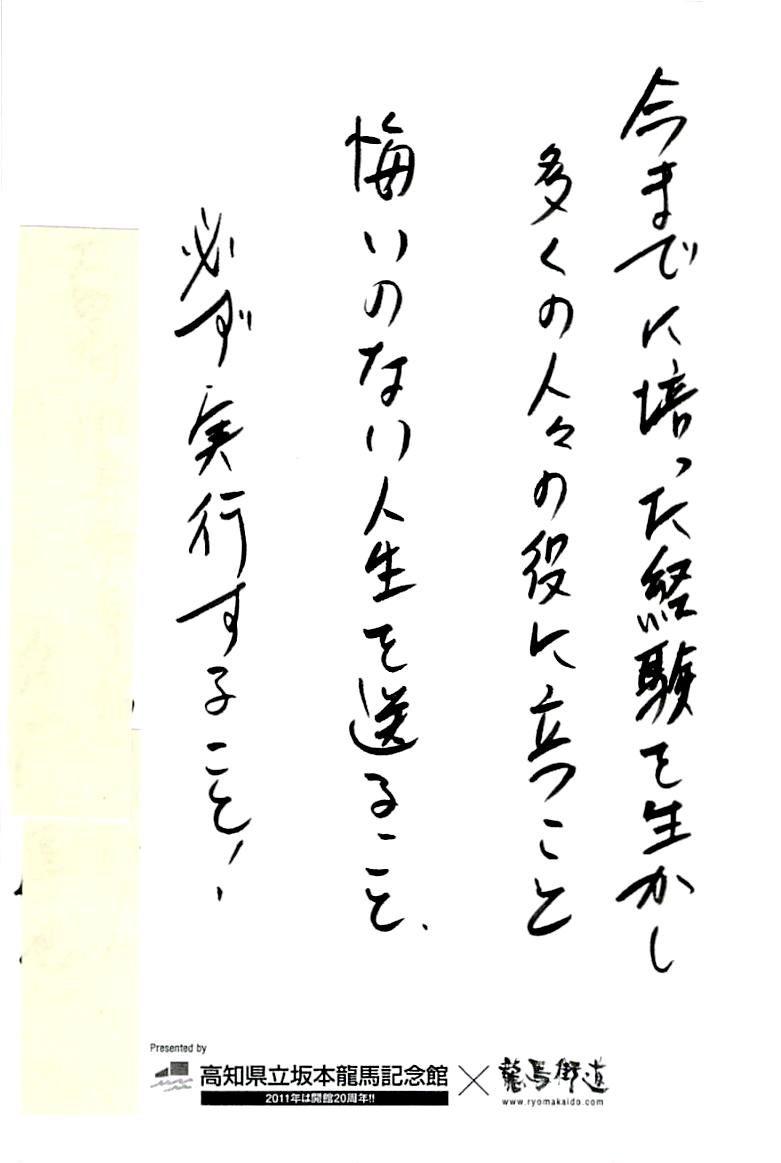 今までに培った経験を生かし
多くの人々の役に立つこと
悔いのない人生を送ること、
必ず実行すること!
Presented by
高知県立坂本龍馬記念館
2011年は開館20周年!!
×
龍馬街道
www.ryomakaido.com